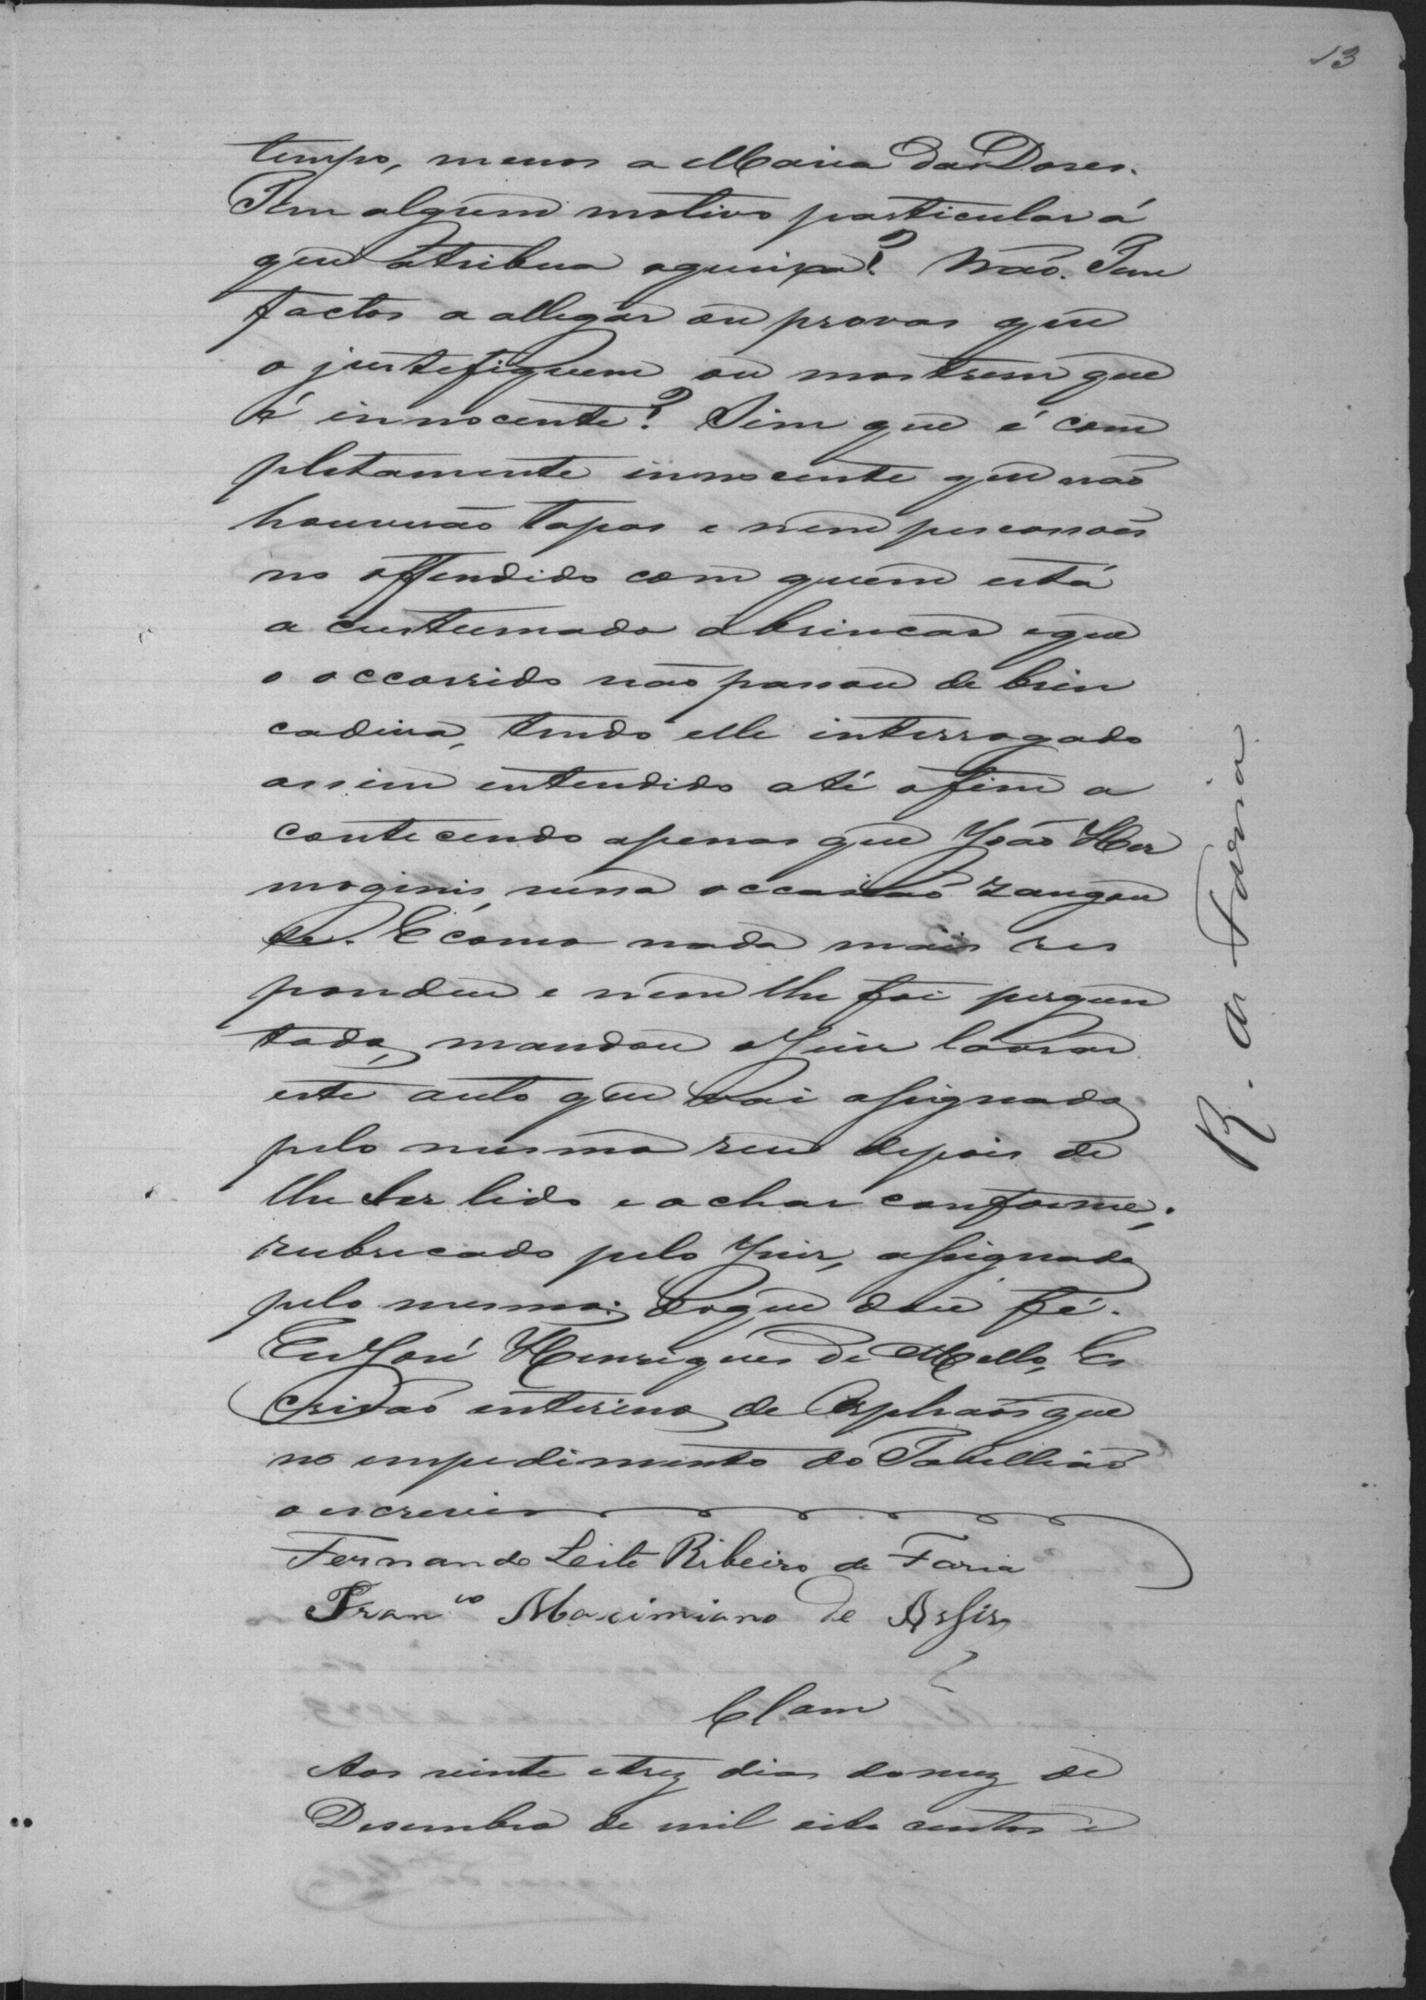 13
tempo, menos a Maria das Dores.
Tem algum motivo particular á
que atribua a queixa? Não. Tem
factos a allegar ou provas que
o justefiquem ou mostrem que
é innocente? Sim que é com
pletamente innocente que não
houverão tapas e nem pescosoes
no offendido com quem está
a custumado a brincar e que
o occorrido não passou de brin
cadeira, tendo elle interrogado
assim entendido até o fim a
contecendo apenas que João Her
moginis, n'uma occasião zangou
se. E como nada mais res
pondeu e nem lhe foi pergun
tado, mandou o Juiz lavrar
este auto que vai assignado
pelo mesmo reu depois de
lhe ser lido e achar conforme;
rubricado pelo Juiz, assignado
pelo mesmo; do que dou fé.
Eu José Henriques de Mello, Es
crivão interino de Orphaõs que
no empedimento do Tabellião
o escrevi
Fernando Leite Ribeiro de Faria
Fran.co Maximiano de Assis
R. de Faria
Clam
Aos vinte e trez dias do mez de
Desembro de mil oito centos e